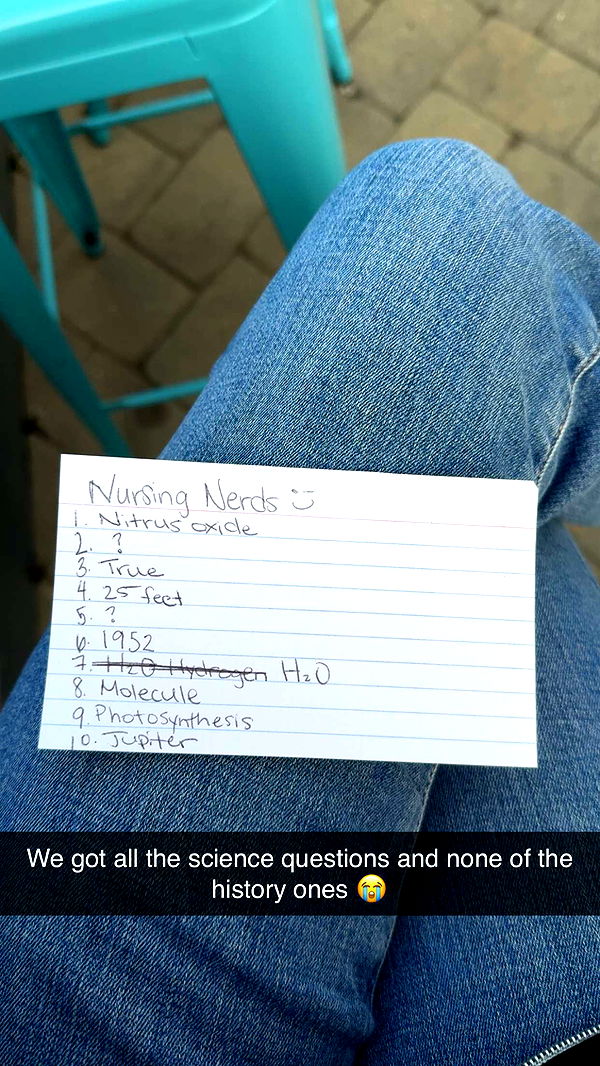 Nursing Nerds :)
1. Nitrus oxide
2. ?
3. True
4. 25 feet
5. ?
6. 1952
7. H₂O Hydrogen H₂O
8. Molecule
9. Photosynthesis
10. Jupiter
We got all the science questions and none of the
history ones 😭